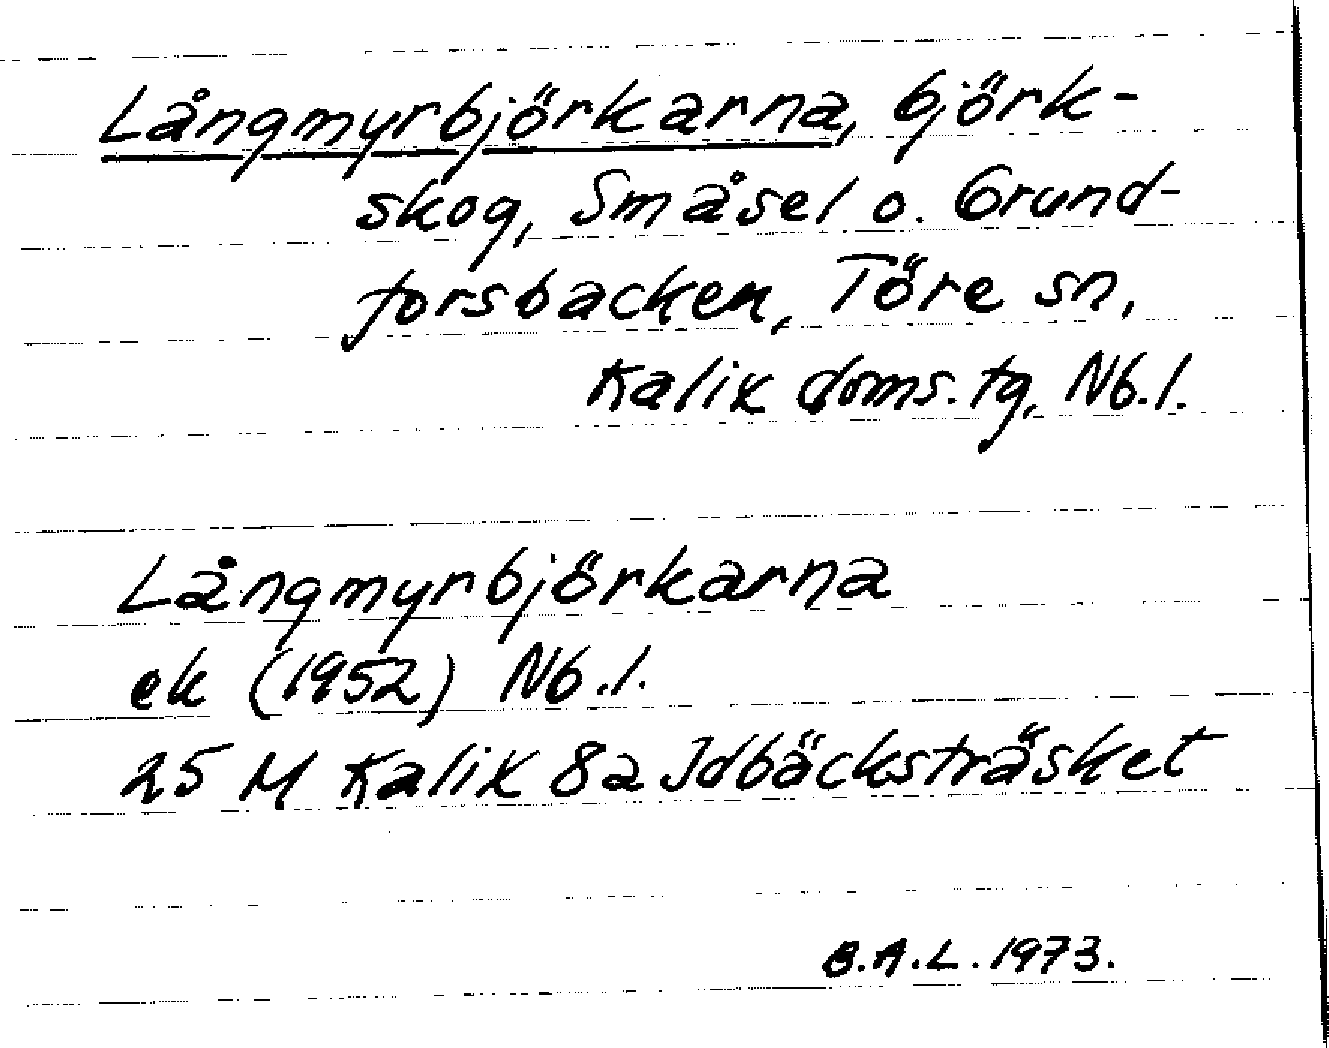 Långmyrbjörkarna, björk-
skog, Småsel o. Grund-
forsbacken, Töre sn,
Kalix doms. tg, Nb.l.
Långmyrbjörkarna
ek (1952) Nb.l.
25 M Kalix 8a Idbäcksträsket
B.A.L. 1973.